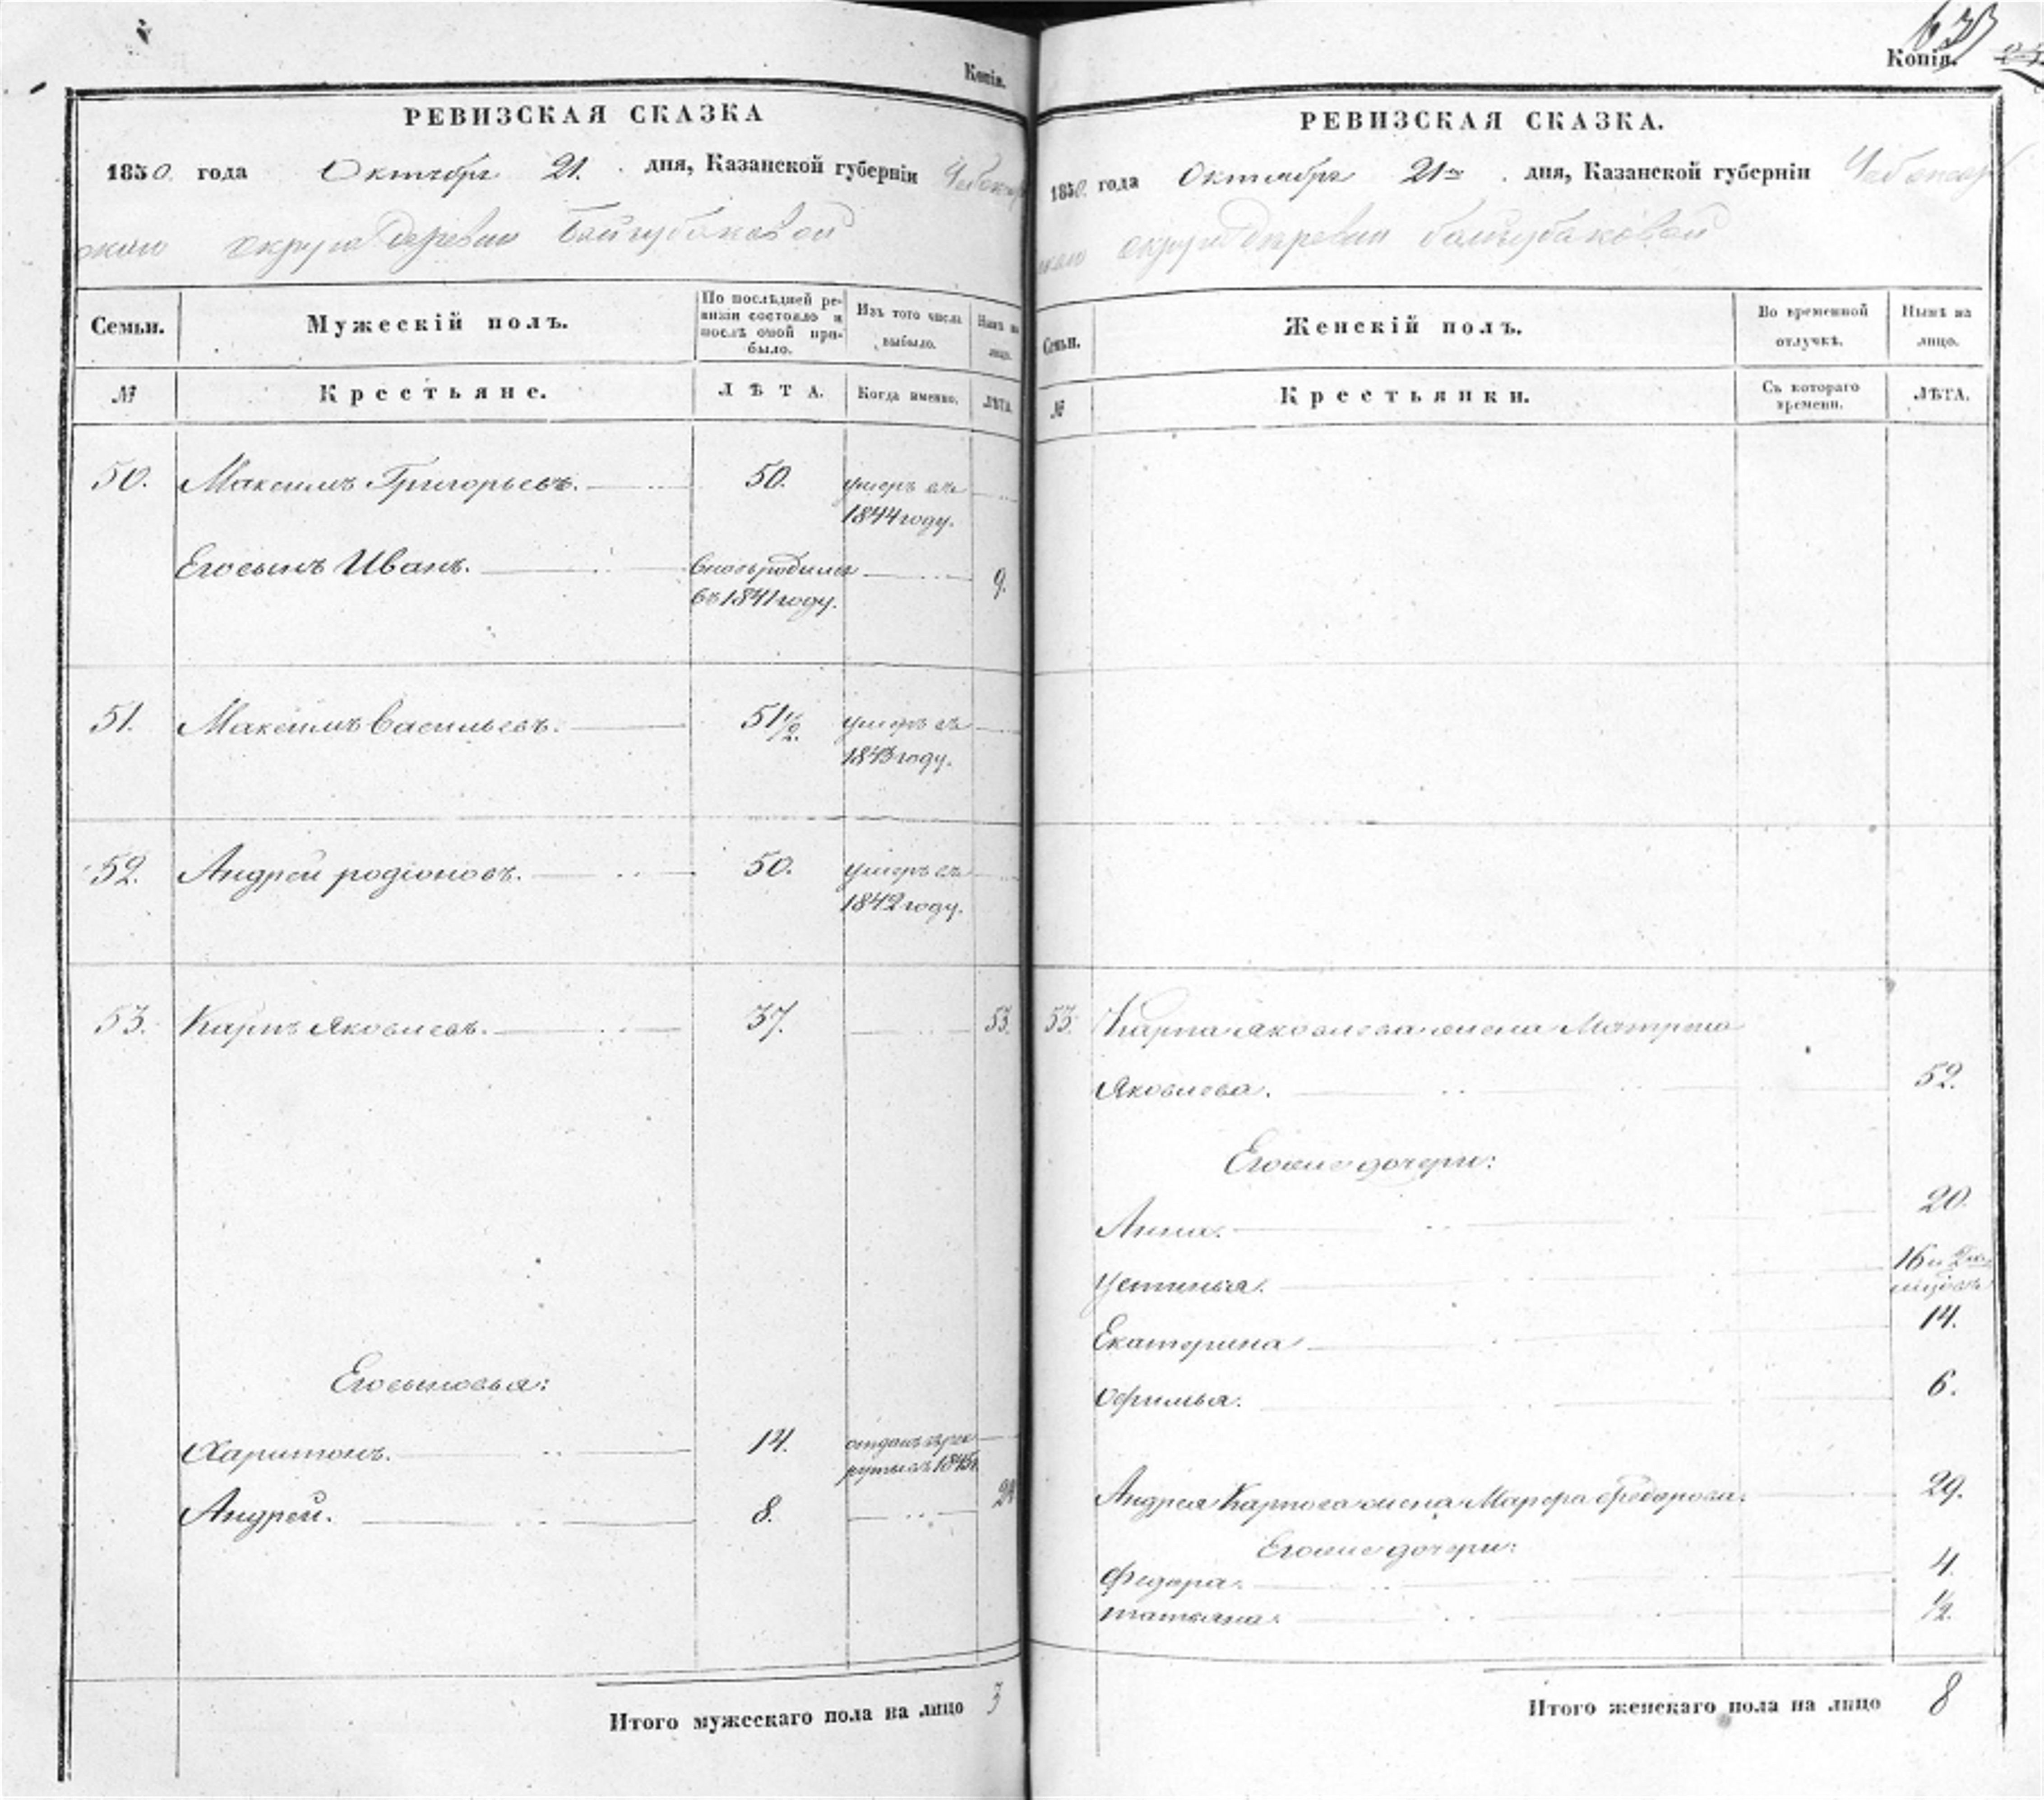 Копія.
РЕВИЗСКАЯ СКАЗКА
1850. года Октября 21. дня, Казанской губерніи Чебоксар
скаго округа деревни Байгубаковой
Семьи.
Мужескій полъ.
По послѣдней ре-
визіи состояло и
послѣ оной при-
было.
Изъ того числа
выбыло.
Нынѣ на
лицо.
№
Крестьяне.
ЛѢТА.
Когда именно.
ЛѢТА.
50. Максимъ Григорьевъ. 50. умеръ въ
1844 году.
Его сынъ Иванъ. вновь родился 9.
въ 1841 году.
51. Максимъ Васильевъ. 51 1/2. умеръ въ
1843 году.
52. Андрей родіоновъ. 50. умеръ въ
1842 году.
53. Карпъ Яковлевъ. 37. 53.
Его сыновья:
Харитонъ. 14. отданъ въ рек
руты въ 1845
Андрей. 8. 24
Итого мужескаго пола на лицо 3
Копія.
РЕВИЗСКАЯ СКАЗКА.
1850. года Октября 21го дня, Казанской губерніи Чебоксар
скаго округа деревни байгубаковой
Семьи.
Женскій полъ.
Во временной
отлучкѣ.
Нынѣ на
лицо.
№
Крестьянки.
Съ котораго
времени.
ЛѢТА.
53. Карпа яковлева жена Матрена
Яковлева. 52.
Его же дочери:
Анна. 20.
Устинья. 16 и 2
Екатерина 14.
Офимья. 6.
Андрея Карпова жена Марфа Федорова. 29.
Его же дочери:
Федора. 4.
татьяна. 1/2.
Итого женскаго пола на лицо 8